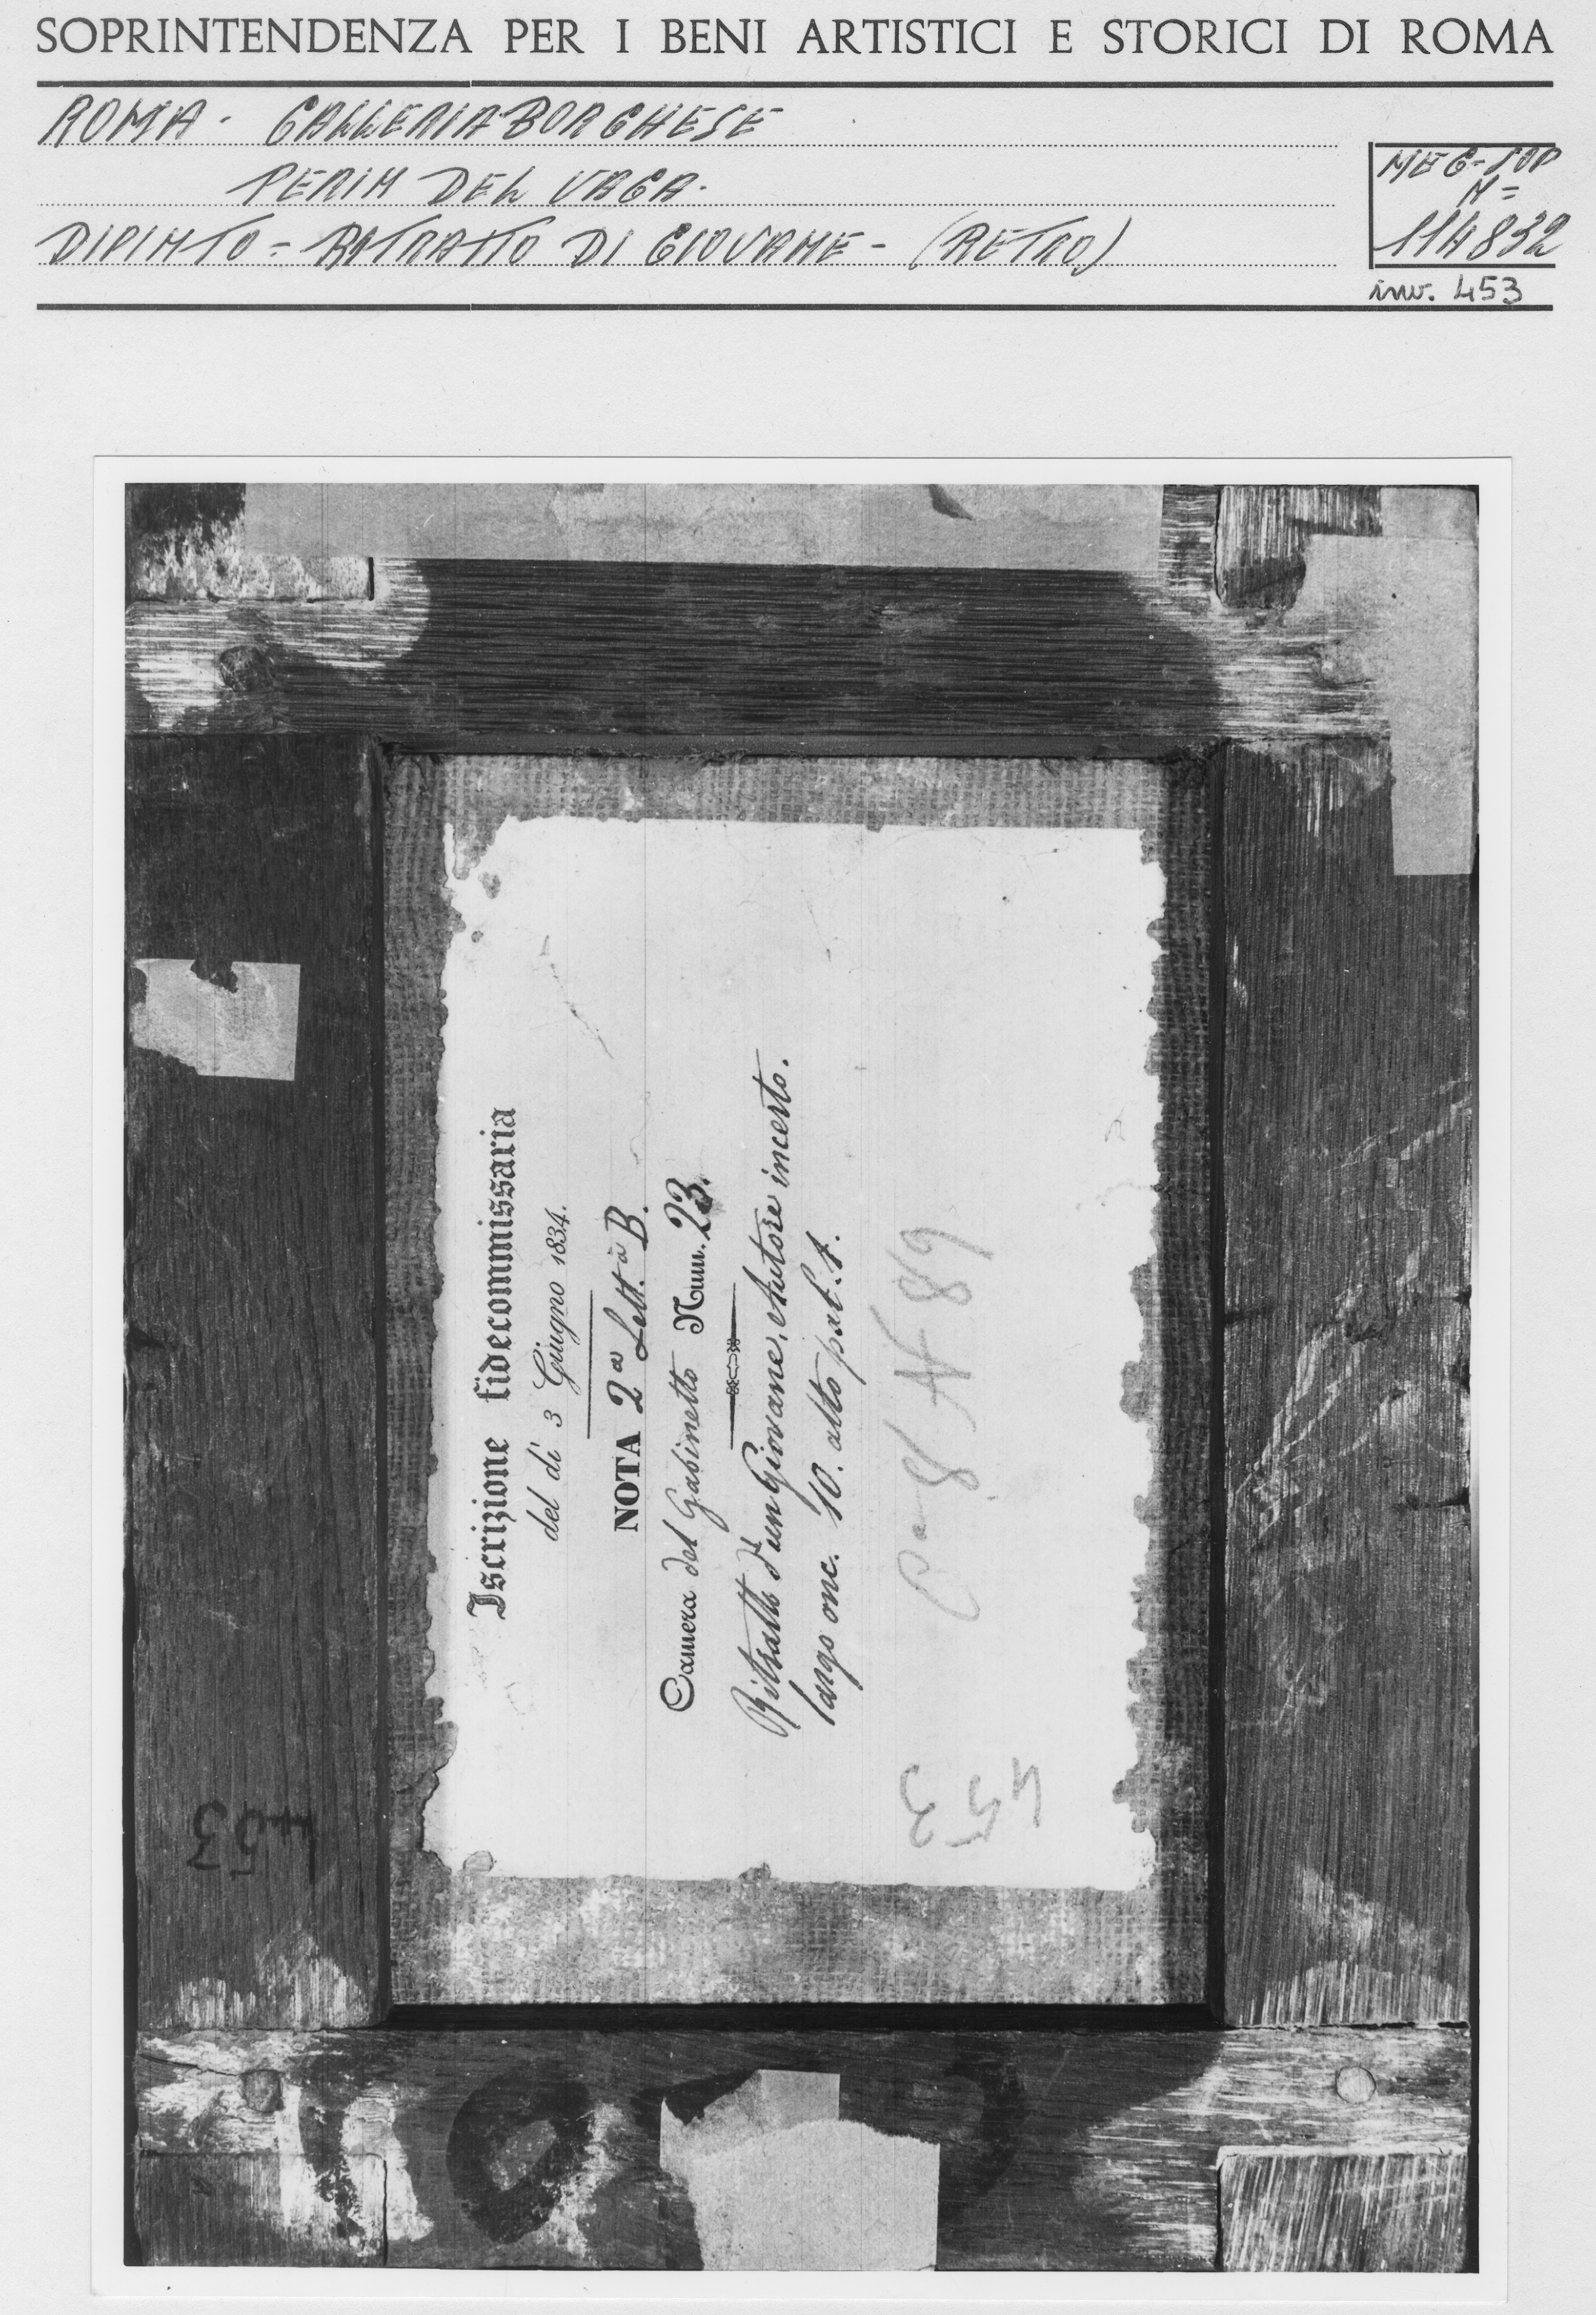 SOPRINTENDENZA PER I BENI ARTISTICI E STORICI DI ROMA
ROMA - GALLERIA BORGHESE
PERIN DEL VAGA.
DIPINTO = RITRATTO DI GIOVANE - (RETRO)
NEG-SBP
N=
114832
inv. 453
Iscrizione fidecommissaria
del dì 3 Giugno 1834.
NOTA 2ª Lett.ª B.
Camera del Gabinetto Num. 23.
Ritratto d'un Giovane, Autore incerto.
largo onc. 10. alto pal. 1.
N 89
453
453